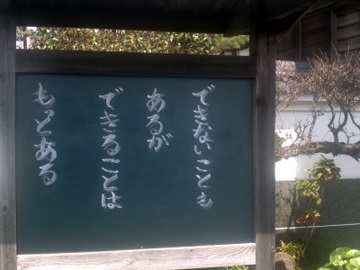 できないことも
あるが
できることは
もっとある